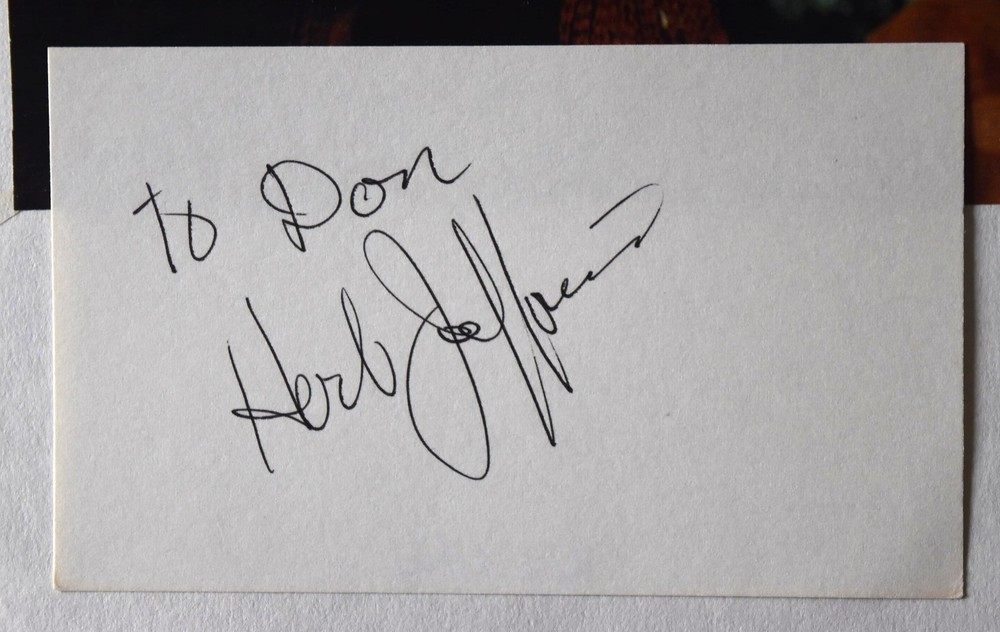 to Don
Herb Jeffries